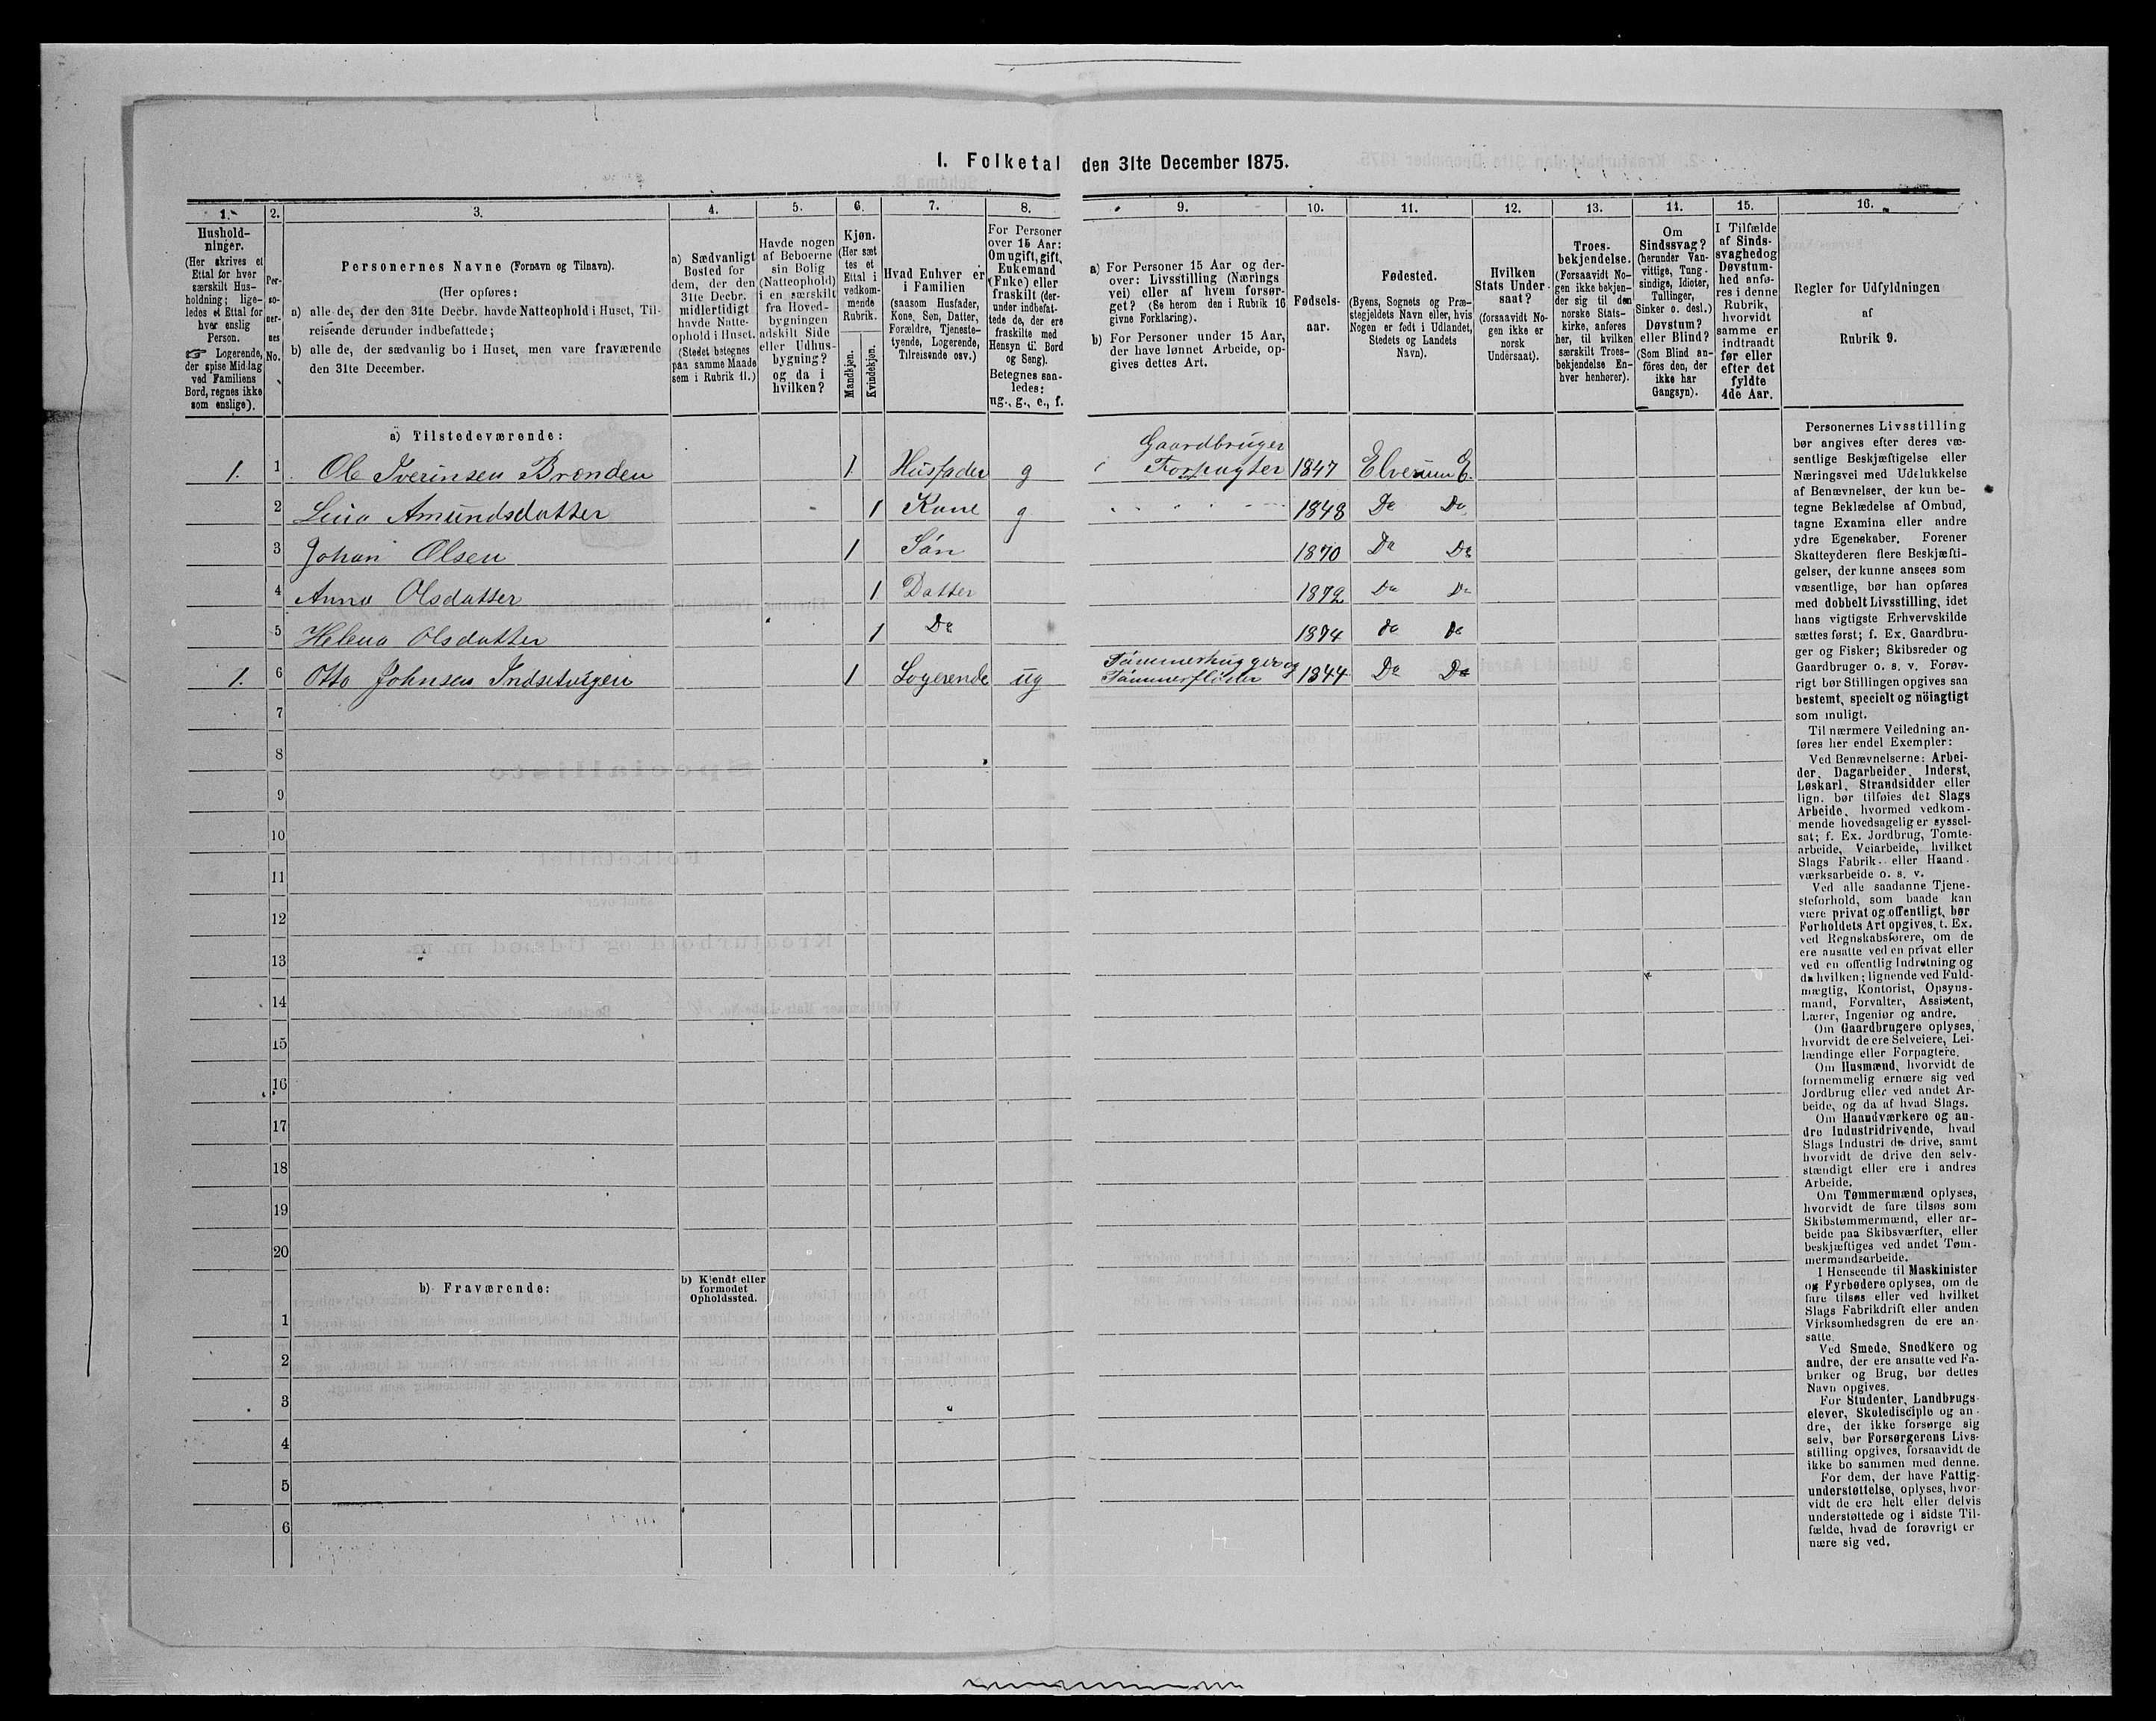 I. Folketal den 31te December 1875.
1.
2.
3.
4.
5.
6.
7.
8.
9.
10.
11.
12.
13.
14.
15.
16.
Hushold-
ninger.
(Her skrives et
Ettal for hver
særskilt Hus-
holdning; lige-
ledes et Ettal for
hver enslig
Person.
☞ Logerende,
der spise Middag
ved Familiens
Bord, regnes ikke
som enslige).
Per-
so-
ner-
nes
No.
Personernes Navne (Fornavn og Tilnavn).
(Her opføres:
a) alle de, der den 31te Decbr. havde Natteophold i Huset, Til-
reisende derunder indbefattede;
b) alle de, der sædvanlig bo i Huset, men vare fraværende
den 31te December.
a) Sædvanligt
Bosted for
dem, der den
31te Decbr.
midlertidigt
havde Natte-
ophold i Huset.
(Stedet betegnes
paa samme Maade
som i Rubrik 11.)
Havde nogen
af Beboerne
sin Bolig
(Natteophold)
i en særskilt
fra Hoved-
bygningen
adskilt Side
eller Udhus-
bygning?
og da i
hvilken?
Kjøn.
(Her sæt
tes et
Ettal i
vedkom-
mende
Rubrik.
Mandkjøn.
Kvindekjøn.
Hvad Enhver er
i Familien
(saasom Husfader,
Kone, Søn, Datter,
Forældre, Tjeneste-
tyende, Logerende,
Tilreisende osv.)
For Personer
over 15 Aar:
Om ugift, gift,
Enkemand
(Enke) eller
fraskilt (der-
under indbefat-
tede de, der ere
fraskilte med
Hensyn til Bord
og Seng).
Betegnes saa-
ledes:
ug., g., e., f.
a) For Personer 15 Aar og der-
over: Livsstilling (Nærings
vei) eller af hvem forsør-
get? (Se herom den i Rubrik 16
givne Forklaring).
b) For Personer under 15 Aar,
der have lønnet Arbeide, op-
gives dettes Art.
Fødsels-
aar.
Fødested.
(Byens, Sognets og Præ-
stegjeldets Navn eller, hvis
Nogen er født i Udlandet,
Stedets og Landets
Navn).
Hvilken
Stats Under-
saat?
(forsaavidt No-
gen ikke er
norsk
Undersaat).
Troes-
bekjendelse.
(Forsaavidt No-
gen ikke bekjen-
der sig til den
norske Stats-
kirke, anføres
her, til hvilken
særskilt Troes-
bekjendelse En-
hver henhører).
Om
Sindssvag?
(herunder Van-
vittige, Tung-
sindige, Idioter,
Tullinger,
Sinker o. desl.)
Døvstum?
eller Blind?
(Som Blind an-
føres den, der
ikke har
Gangsyn).
I Tilfælde
af Sinds-
svaghed og
Døvstum-
hed anfø-
res i denne
Rubrik,
hvorvidt
samme er
indtraadt
før eller
efter det
fyldte
4de Aar.
Regler for Udfyldningen
af
Rubrik 9.
a) Tilstedeværende:
1. 1 Ole Iverinsen Brænden 1 Husfader g Gaardbruger Forpagter 1847 Elverum E.
2 Lina Amundsdatter 1 Kone g 1848 Do Do
3 Johan Olsen 1 Søn 1870 Do Do
4 Anna Olsdatter 1 Datter 1872 Do Do
5 Helena Olsdatter 1 Do 1874 do do
1. 6 Otto Johnsen Indsetvigen 1 Logerende ug Tømmerhugger og Tømmerfløder 1844 Do Do
7
8
9
10
11
12
13
14
15
16
17
18
19
20
b) Fraværende:
b) Kjendt eller
formodet
Opholdssted.
1
2
3
4
5
6
Personernes Livsstilling
bør angives efter deres væ-
sentlige Beskjæftigelse eller
Næringsvei med Udelukkelse
af Benævnelser, der kun be-
tegne Beklædelse af Ombud,
tagne Examina eller andre
ydre Egenskaber. Forener
Skatteyderen flere Beskjæfti-
gelser, der kunne ansees som
væsentlige, bør han opføres
med dobbelt Livsstilling, idet
hans vigtigste Erhvervskilde
sættes først; f. Ex. Gaardbru-
ger og Fisker; Skibsreder og
Gaardbruger o. s. v. Forøv-
rigt bør Stillingen opgives saa
bestemt, specielt og nöiagtigt
som muligt.
Til nærmere Veiledning an-
føres her endel Exempler:
Ved Benævnelserne: Arbei-
der, Dagarbeider, Inderst,
Løskarl, Strandsidder eller
lign. bør tilføies det Slags
Arbeide, hvormed vedkom-
mende hovedsagelig er syssel-
sat; f. Ex. Jordbrug, Tomte-
arbeide, Veiarbeide, hvilket
Slags Fabrik- eller Haand-
værksarbeide o. s. v.
Ved alle saadanne Tjene-
steforhold, som baade kan
være privat og offentligt, bør
Forholdets Art opgives, f. Ex.
ved Regnskabsførere, om de
ere ansatte ved en privat eller
ved en offentlig Indretning og
da hvilken; lignende ved Fuld-
mægtig, Kontorist, Opsyns-
mand, Forvalter, Assistent,
Lærer, Ingeniør og andre.
Om Gaardbrugere oplyses,
hvorvidt de ere Selveiere, Lei-
lændinge eller Forpagtere.
Om Husmænd, hvorvidt de
fornemmelig ernære sig ved
Jordbrug eller ved andet Ar-
beide, og da af hvad Slags.
Om Haandværkere og an-
dre Industridrivende, hvad
Slags Industri de drive, samt
hvorvidt de drive den selv-
stændigt eller ere i andres
Arbeide.
Om Tømmermænd oplyses,
hvorvidt de fare tilsøs som
Skibstømmermænd, eller ar-
beide paa Skibsværfter, eller
beskjæftiges ved andet Tøm-
mermandsarbeide.
I Henseende til Maskinister
og Fyrbødere oplyses, om de
fare tilsøs eller ved hvilket
Slags Fabrikdrift eller anden
Virksomhedsgren de ere an-
satte.
Ved Smede, Snedkere og
andre, der ere ansatte ved Fa-
briker og Brug, bør dettes
Navn opgives.
For Studenter, Landbrugs-
elever, Skoledisciple og an-
dre, der ikke forsørge sig
selv, bør Forsørgerens Livs-
stilling opgives, forsaavidt de
ikke bo sammen med denne.
For dem, der have Fattig-
understøttelse, oplyses, hvor-
vidt de ere helt eller delvis
understøttede og i sidste Til-
fælde, hvad de forøvrigt er
nære sig ved.